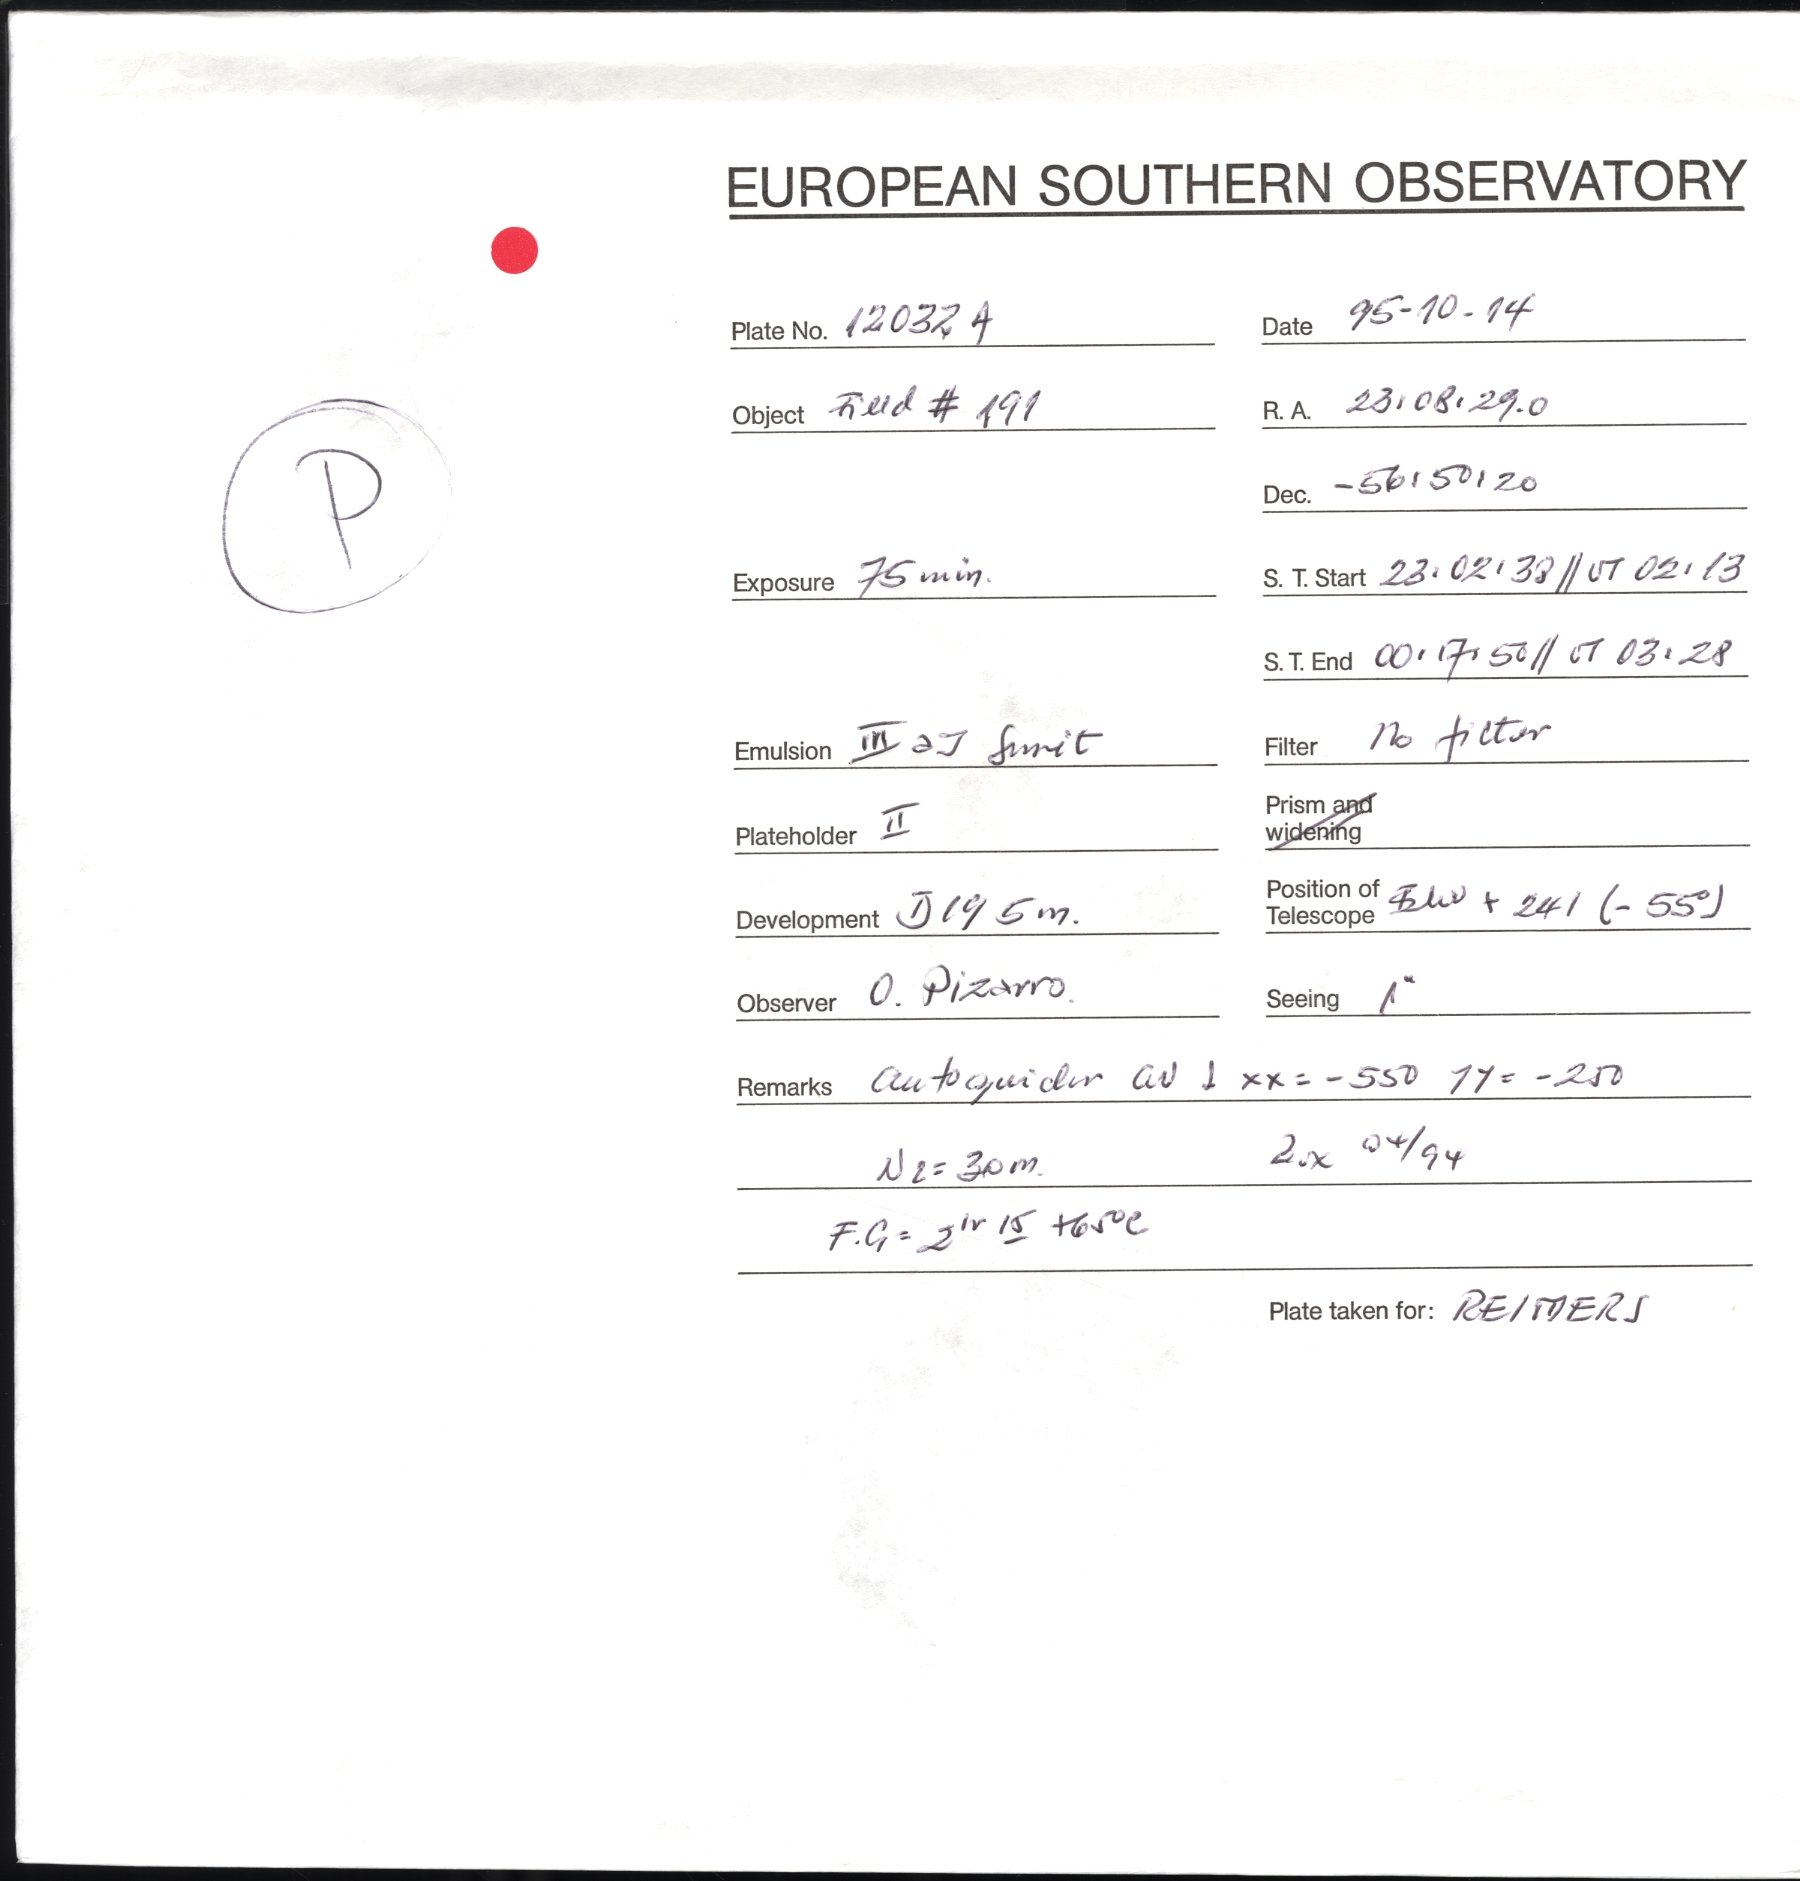 EUROPEAN SOUTHERN OBSERVATORY
P
Plate No. 12032 A
Date 95-10-14
Object Field # 191
R. A. 23:08:29.0
Dec. -56:50:20
Exposure 75 min.
S. T. Start 23:02:38 // UT 02:13
S. T. End 00:17:50 // UT 03:28
Emulsion III aJ
Filter No filter
Plateholder II
Prism and widening
Development D19 5 m.
Position of Telescope + 241 (-55°)
Observer O. Pizarro.
Seeing 1"
Remarks autoguider xx = -550 yy = -250
N2 = 30 m. 04/94
F.G = 15 +65°C
Plate taken for: REIMERS